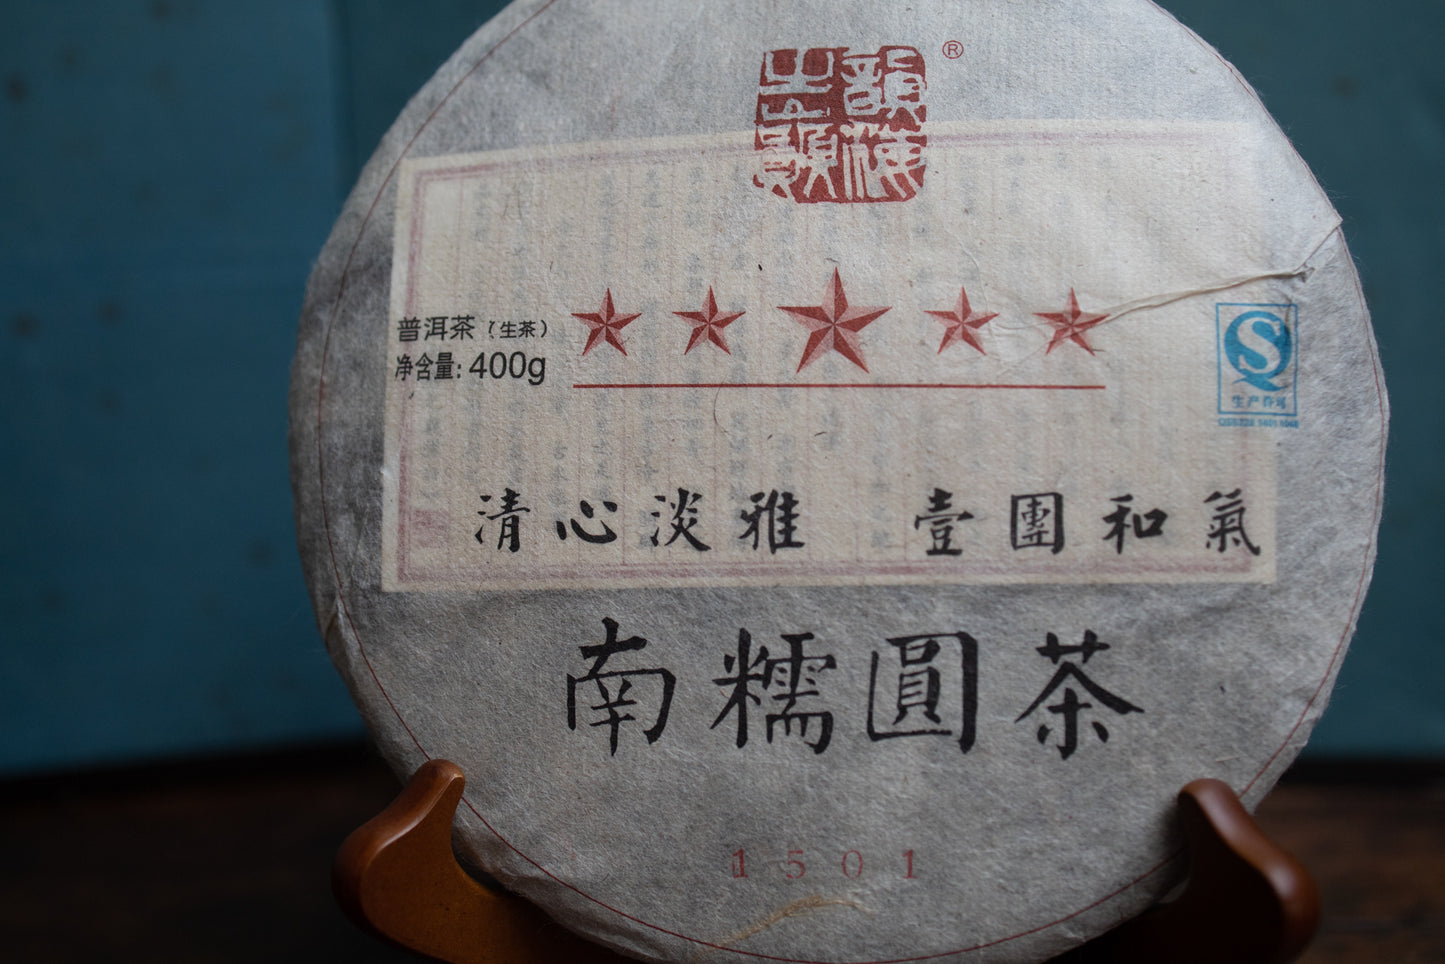 ®
普洱茶(生茶)
净含量: 400g
生产许可
清心淡雅 壹團和氣
南糯圓茶
1501